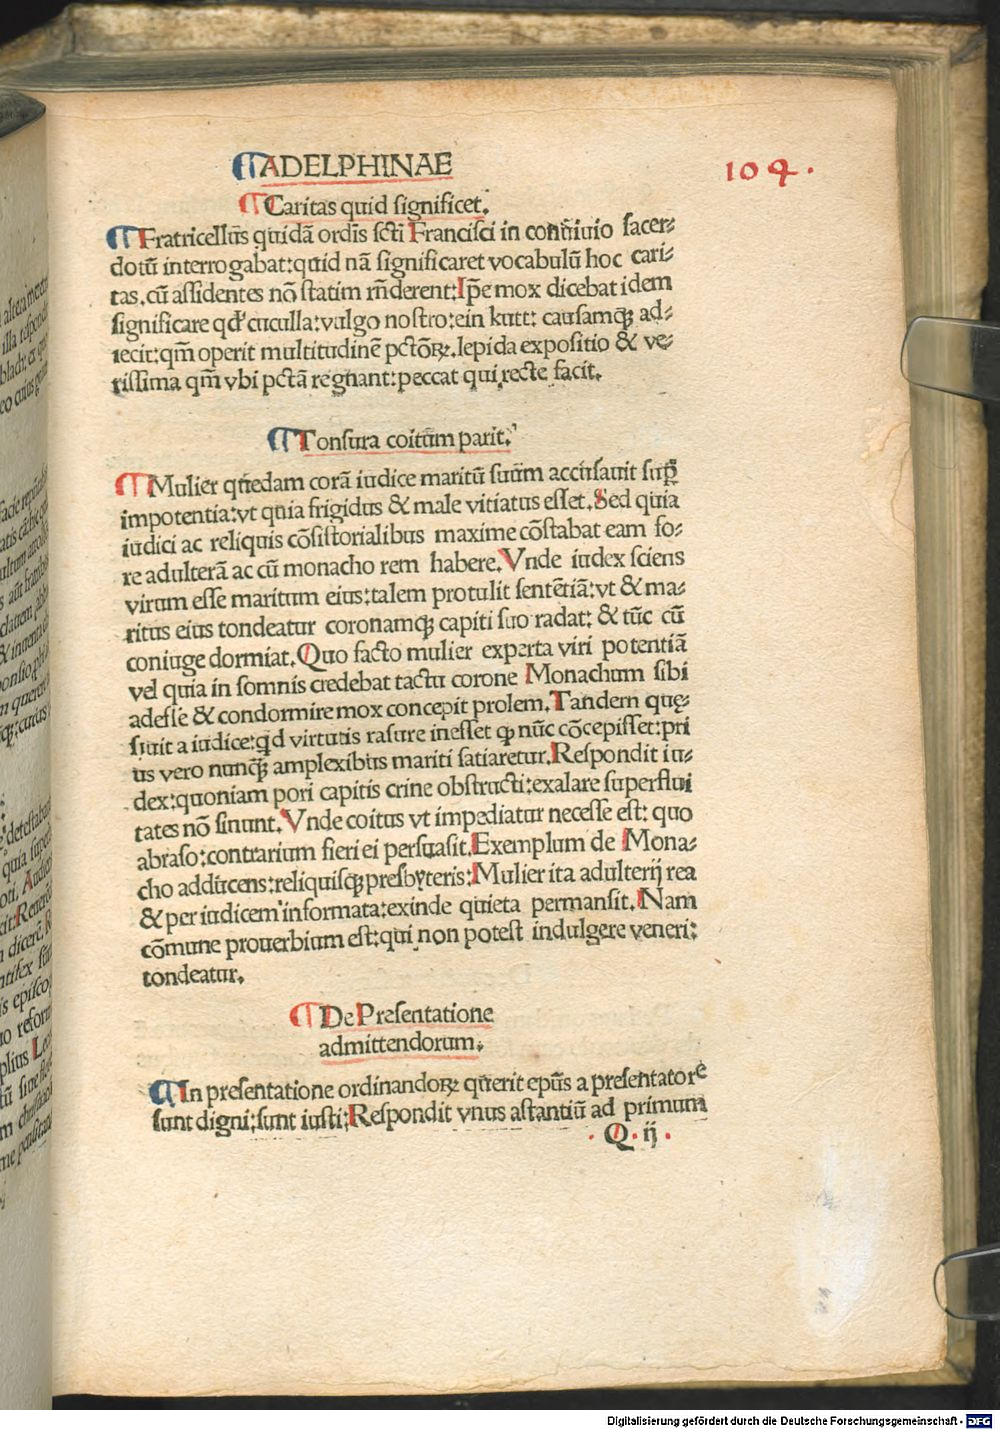 ADELPHINAE
104.
Caritas quid significet.
Fratricellus quidã ordĩs scti Francisci in conuiuio sacer-
dotũ interrogabat: quid nã significaret vocabulũ hoc cari-
tas. cũ assidentes nõ statim rñderent: Ipẽ mox dicebat idem
significare qđ cuculla: vulgo nostro: ein kutt: causamqꝫ ad-
iecit: qm̃ operit multitudinẽ pctõꝝ. lepida expositio & ve-
rissima qm̃ vbi pctã regnant: peccat qui recte facit.
Tonsura coitum parit.
Mulier quedam corã iudice maritũ suum accusauit sup
impotentia: vt quia frigidus & male vitiatus esset. Sed quia
iudici ac reliquis cõsistorialibus maxime cõstabat eam fo-
re adulterã ac cũ monacho rem habere. Vnde iudex sciens
virum esse maritum eius: talem protulit sentẽtiã: vt & ma-
ritus eius tondeatur coronamqꝫ capiti suo radat: & tũc cũ
coniuge dormiat. Quo facto mulier experta viri potentiã
vel quia in somnis credebat tactu corone Monachum sibi
adesse & condormire mox concepit prolem. Tandem quę-
siuit a iudice: qd virtutis rasure inesset ꝙ nũc cõcepisset: pri
us vero nunqꝫ amplexibus mariti satiaretur. Respondit iu-
dex: quoniam pori capitis crine obstructi: exalare superflui
tates nõ sinunt. Vnde coitus vt impediatur necesse est: quo
abraso: contrarium fieri ei persuasit. Exemplum de Mona-
cho adducens: reliquisqꝫ presbyteris: Mulier ita adulterij rea
& per iudicem informata: exinde quieta permansit. Nam
cõmune prouerbium est: qui non potest indulgere veneri:
tondeatur.
De Presentatione
admittendorum.
In presentatione ordinandoꝝ querit epũs a presentatore
sunt digni: sunt iusti: Respondit vnus astantiũ ad primum
Q. ij.
Digitalisierung gefördert durch die Deutsche Forschungsgemeinschaft - DFG